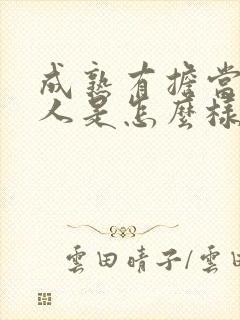 成熟有擔當
人是怎麼樣
雲田晴子/雲田